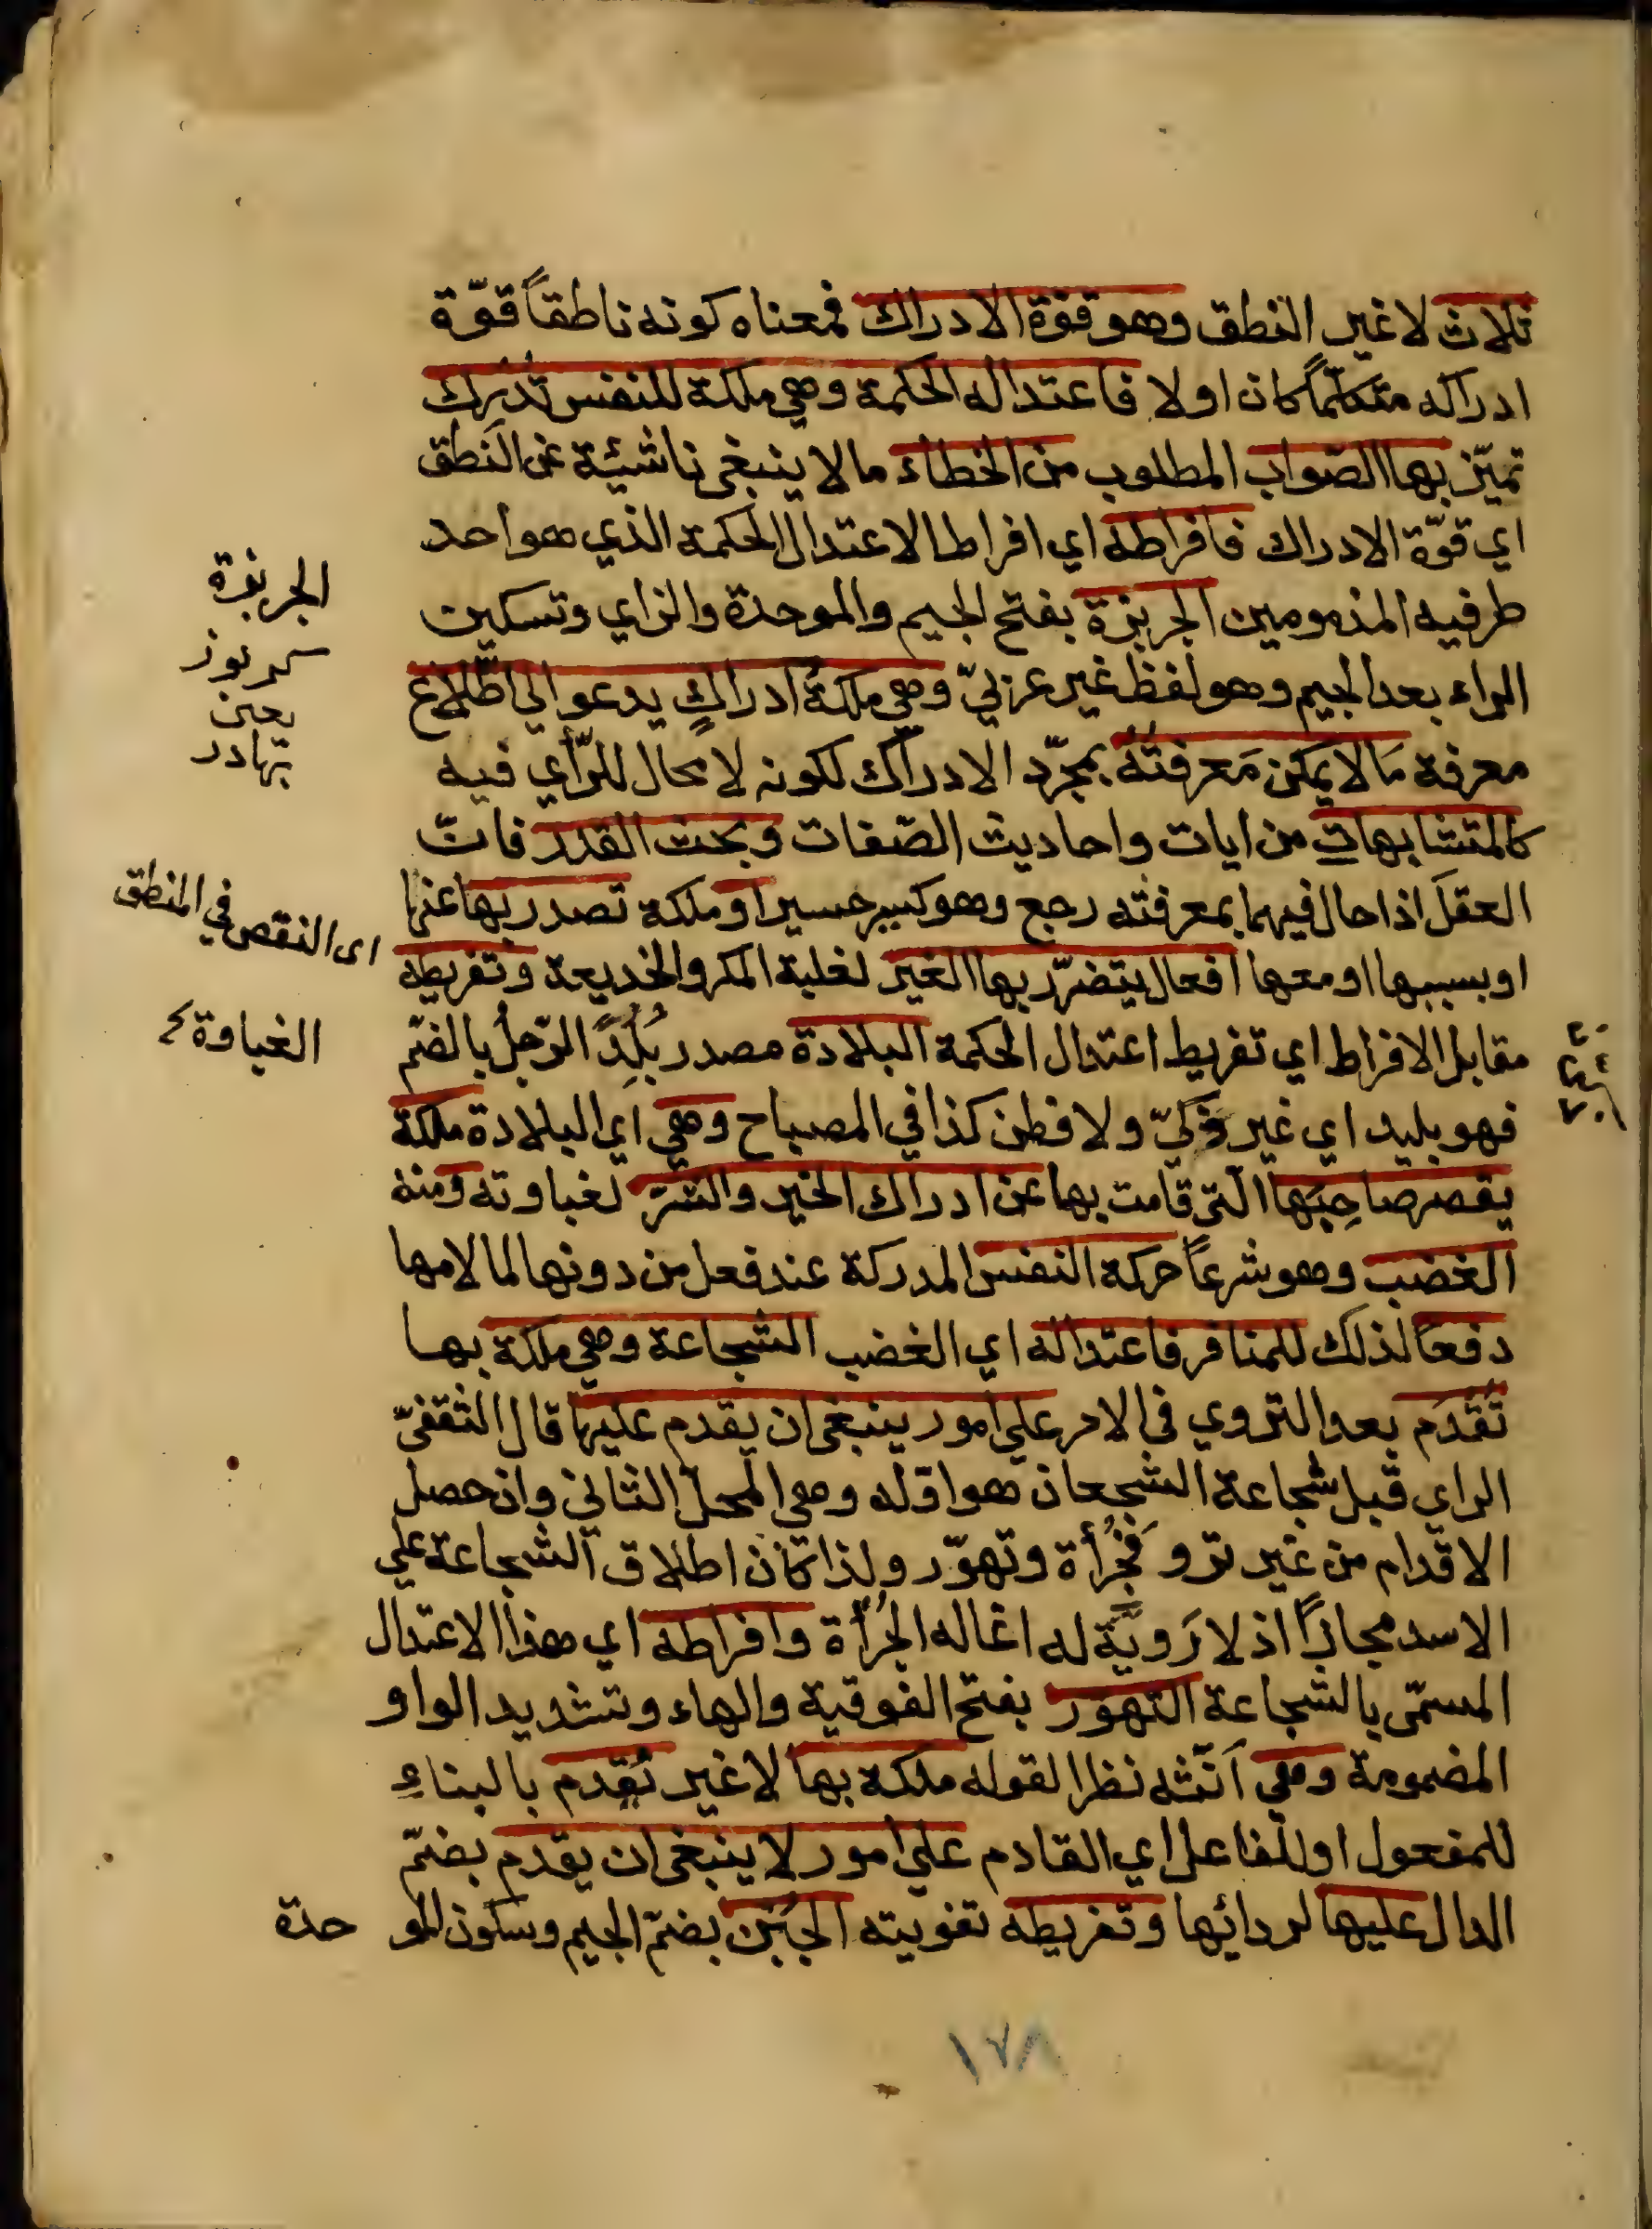 ثلاث لا غير النطق وهو قوّة الادراك فمعناه كونه ناطقاً قوّة
ادراكه متكلّماً كان او لا فاعتداله الحكمة وهي ملكة للنفس تُدرِك
تميّز بها الصّواب المطلوب من الخطاء مالا ينبغي ناشيئة عن النّطق
اي قوّة الادراك فافراطه اي افراط الاعتدال الحكمة الذي هو احد
طرفيه المذمومين الجربزة بفتح الجيم والموحدة والزاي وتسكين
الراء بعد الجيم وهو لفظ غير عربيّ وهي ملكةُ ادراكٍ يدعو الي اطّلاع
معرفة مَالا يمكن مَعرفتُهُ بمجرّد الادراك لكونه لا مجال للرّأي فيه
كالمتشابهات من ايات واحاديث الصّفات وبحث القدر فانّ
العقلَ اذا حال فيهما بمعرفته رجع وهو كسير حسير او ملكة تصدر بها عنها
او بسببها او معها افعال يتضرّر بها الغير لغلبة المكر والخديعة وتفريطه
مقابل الافراط اي تفريط اعتدال الحكمة البلادة مصدر بَلُدَ الرّجلُ بالضّم
فهو بليد اي غير ذكيّ ولا فطن كذا في المصباح وهي اي البلادة ملكة
يقصر صاحِبُها الّتي قامت بها عن ادراك الخير والشرّ لغباوته ومنه
الغضب وهو شرعاً حركة النفس المدركة عند فعل من دونها لما لامها
دفعاً لذلك للمنافر فاعتداله اي الغضب الشجاعة وهي ملكة بها
تُقدَم بعد التروي في الامر علي امور ينبغي ان يقدم عليها قال الثقفيّ
الراي قبل شجاعة الشجعان هو اوّله وهي المحلّ الثاني وان حصل
الاقدام من غير تروٍ فجُرأة وتهوّر ولذا كان اطلاق الشجاعة علي
الاسد مجازاً اذ لا رَويّة له انما له الجُرأة وافراطه اي هذا الاعتدال
المسمّى بالشجاعة التهوّر بفتح الفوقية والهاء وتشديد الواو
المضمومة وهي أنّثه نظرا لقوله ملكة بها لا غير تُقدم بالبناءِ
للمفعول او للفاعل اي القادم علي امور لا ينبغي ان يقدم بضمّ
الدال عليها لردائها وتفريطه تفويته الجُبْن بضمّ الجيم وسكون المو
حدة
الجربزة
يعني
بهادر
اى النقص في المنطق
الغباوة
١٧٨